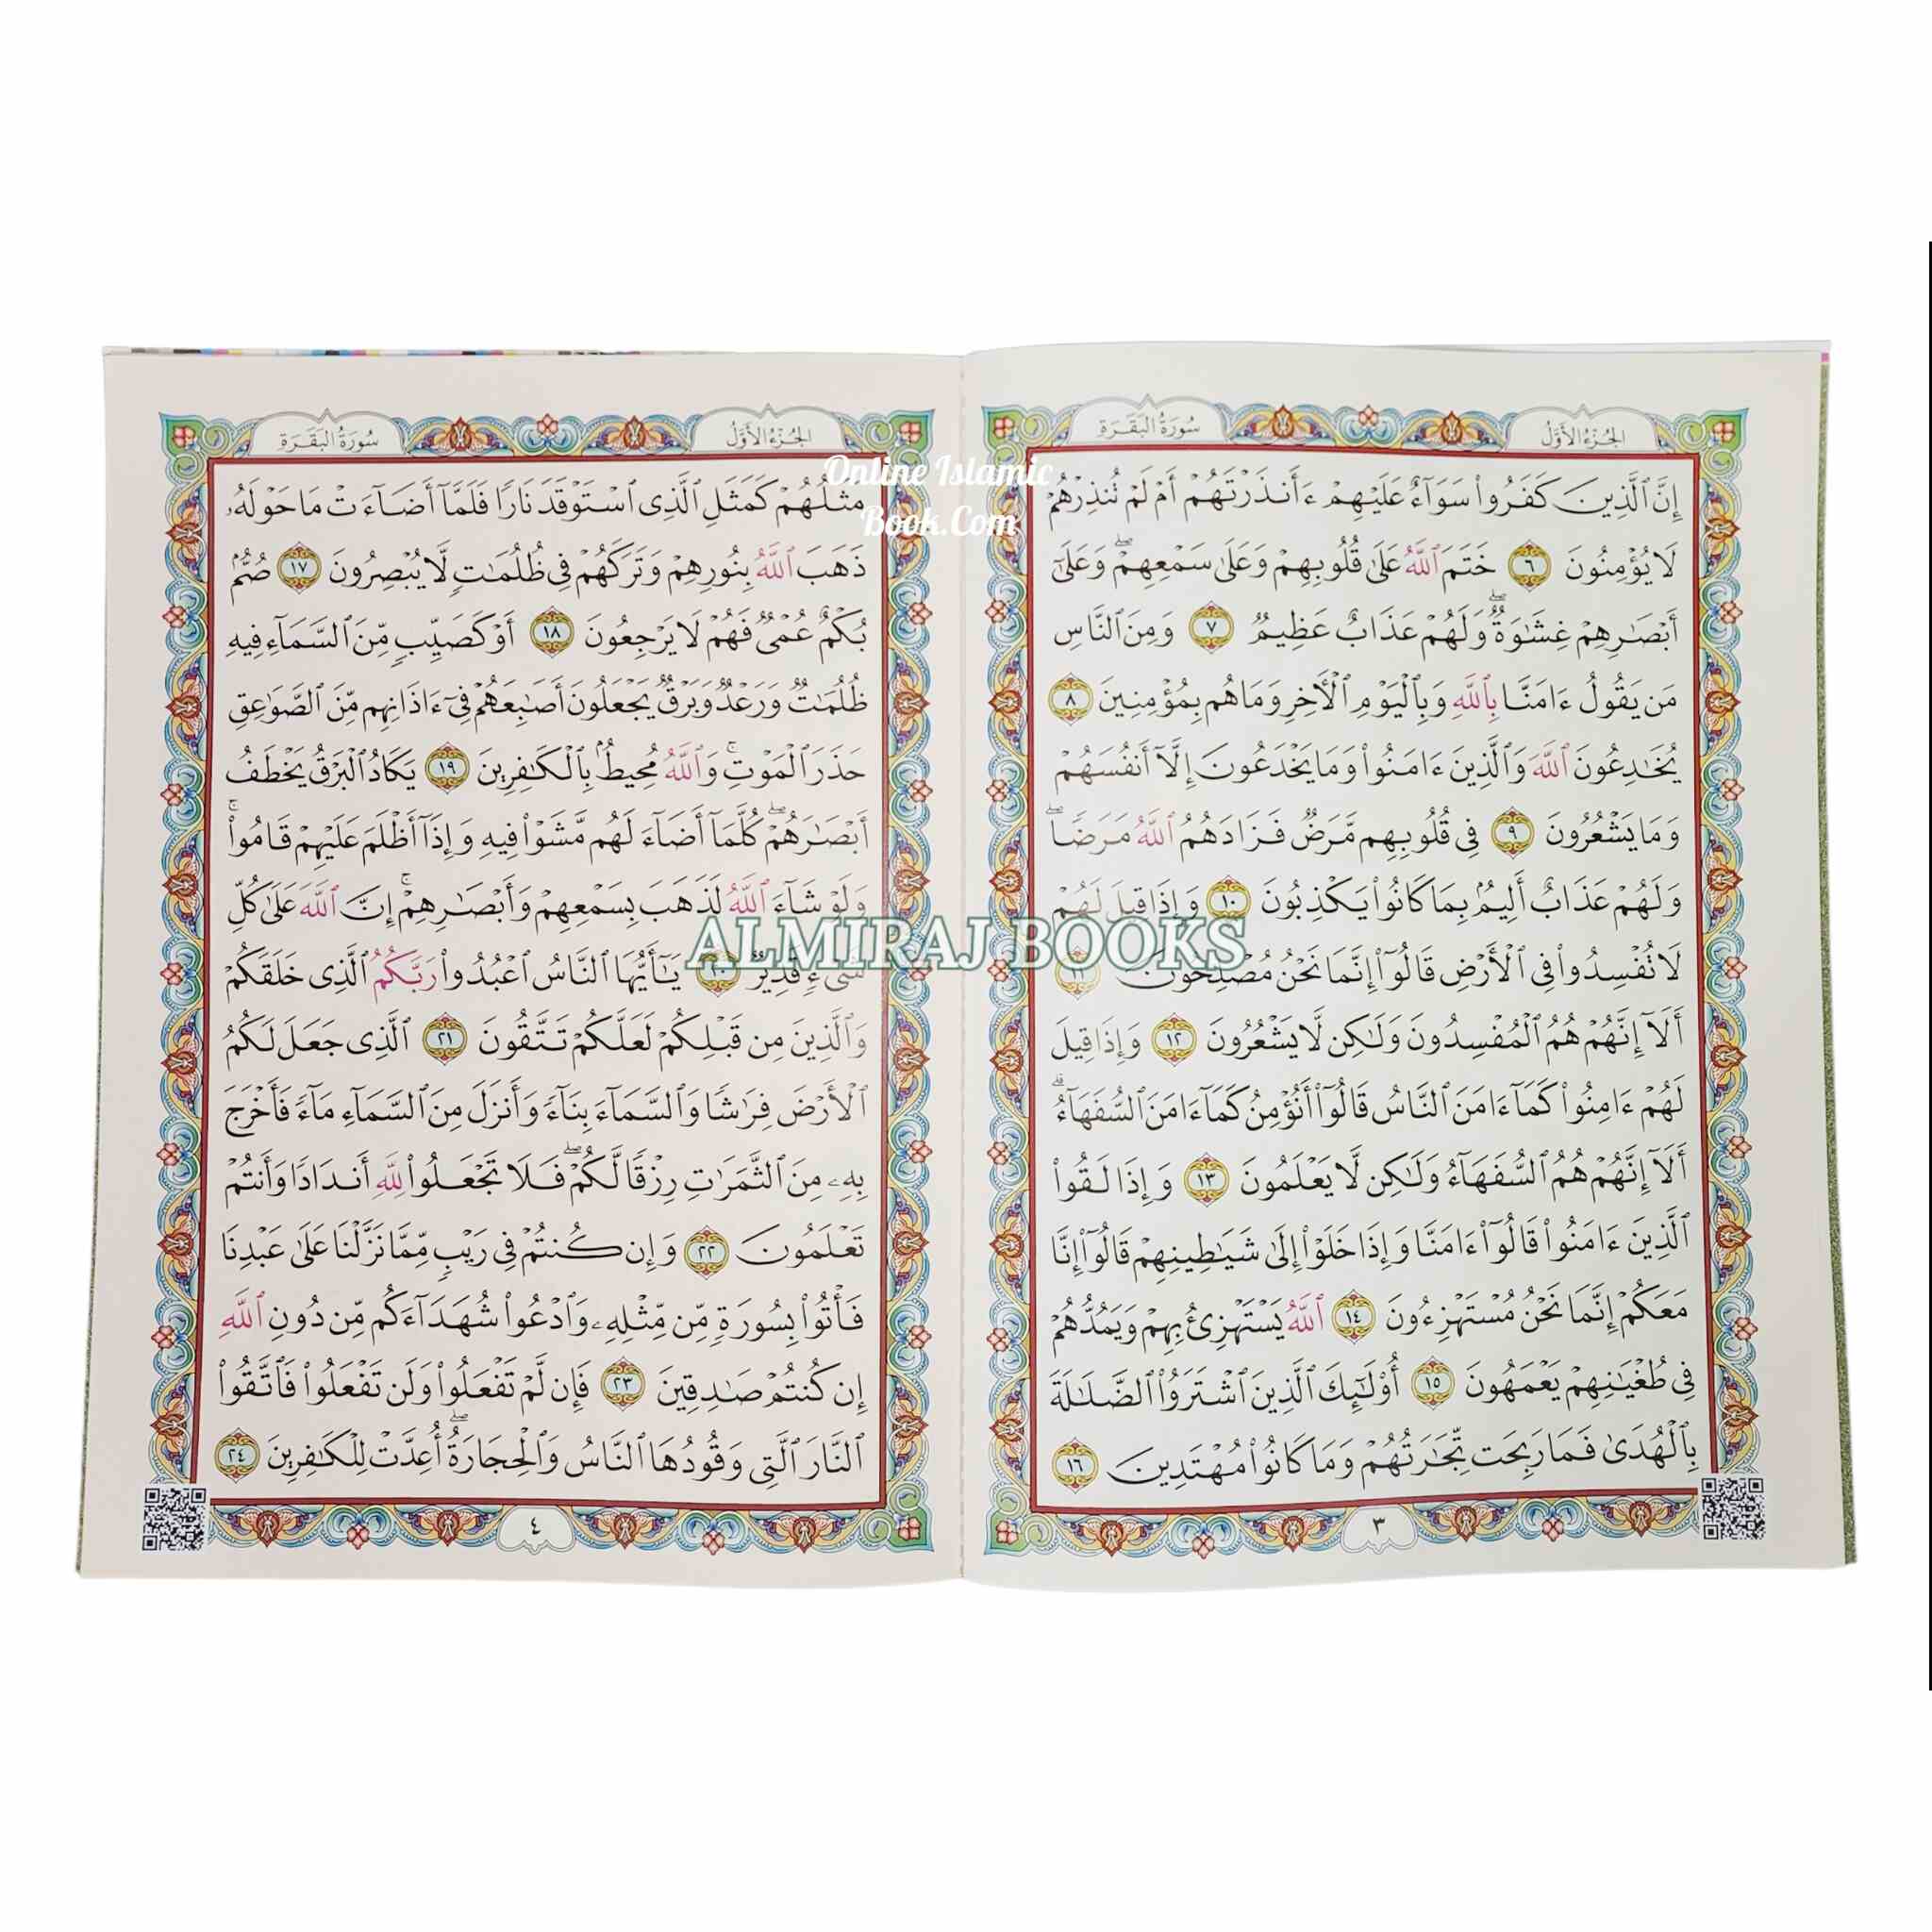 الجُزءُ الأَوَّلُ
سُورَةُ البَقَرَةِ
إِنَّ ٱلَّذِينَ كَفَرُوا۟ سَوَآءٌ عَلَيْهِمْ ءَأَنذَرْتَهُمْ أَمْ لَمْ تُنذِرْهُمْ
لَا يُؤْمِنُونَ ٦ خَتَمَ ٱللَّهُ عَلَىٰ قُلُوبِهِمْ وَعَلَىٰ سَمْعِهِمْ ۖ وَعَلَىٰٓ
أَبْصَـٰرِهِمْ غِشَـٰوَةٌ ۖ وَلَهُمْ عَذَابٌ عَظِيمٌ ٧ وَمِنَ ٱلنَّاسِ
مَن يَقُولُ ءَامَنَّا بِٱللَّهِ وَبِٱلْيَوْمِ ٱلْـَٔاخِرِ وَمَا هُم بِمُؤْمِنِينَ ٨
يُخَـٰدِعُونَ ٱللَّهَ وَٱلَّذِينَ ءَامَنُوا۟ وَمَا يَخْدَعُونَ إِلَّآ أَنفُسَهُمْ
وَمَا يَشْعُرُونَ ٩ فِى قُلُوبِهِم مَّرَضٌ فَزَادَهُمُ ٱللَّهُ مَرَضًا ۖ
وَلَهُمْ عَذَابٌ أَلِيمٌۢ بِمَا كَانُوا۟ يَكْذِبُونَ ١٠ وَإِذَا قِيلَ لَهُمْ
لَا تُفْسِدُوا۟ فِى ٱلْأَرْضِ قَالُوٓا۟ إِنَّمَا نَحْنُ مُصْلِحُونَ ١١
أَلَآ إِنَّهُمْ هُمُ ٱلْمُفْسِدُونَ وَلَـٰكِن لَّا يَشْعُرُونَ ١٢ وَإِذَا قِيلَ
لَهُمْ ءَامِنُوا۟ كَمَآ ءَامَنَ ٱلنَّاسُ قَالُوٓا۟ أَنُؤْمِنُ كَمَآ ءَامَنَ ٱلسُّفَهَآءُ ۗ
أَلَآ إِنَّهُمْ هُمُ ٱلسُّفَهَآءُ وَلَـٰكِن لَّا يَعْلَمُونَ ١٣ وَإِذَا لَقُوا۟
ٱلَّذِينَ ءَامَنُوا۟ قَالُوٓا۟ ءَامَنَّا وَإِذَا خَلَوْا۟ إِلَىٰ شَيَـٰطِينِهِمْ قَالُوٓا۟ إِنَّا
مَعَكُمْ إِنَّمَا نَحْنُ مُسْتَهْزِءُونَ ١٤ ٱللَّهُ يَسْتَهْزِئُ بِهِمْ وَيَمُدُّهُمْ
فِى طُغْيَـٰنِهِمْ يَعْمَهُونَ ١٥ أُو۟لَـٰٓئِكَ ٱلَّذِينَ ٱشْتَرَوُا۟ ٱلضَّلَـٰلَةَ
بِٱلْهُدَىٰ فَمَا رَبِحَت تِّجَـٰرَتُهُمْ وَمَا كَانُوا۟ مُهْتَدِينَ ١٦
٣
الجُزءُ الأَوَّلُ
سُورَةُ البَقَرَةِ
مَثَلُهُمْ كَمَثَلِ ٱلَّذِى ٱسْتَوْقَدَ نَارًا فَلَمَّآ أَضَآءَتْ مَا حَوْلَهُۥ
ذَهَبَ ٱللَّهُ بِنُورِهِمْ وَتَرَكَهُمْ فِى ظُلُمَـٰتٍ لَّا يُبْصِرُونَ ١٧ صُمٌّۢ
بُكْمٌ عُمْىٌ فَهُمْ لَا يَرْجِعُونَ ١٨ أَوْ كَصَيِّبٍ مِّنَ ٱلسَّمَآءِ فِيهِ
ظُلُمَـٰتٌ وَرَعْدٌ وَبَرْقٌ يَجْعَلُونَ أَصَـٰبِعَهُمْ فِىٓ ءَاذَانِهِم مِّنَ ٱلصَّوَٰعِقِ
حَذَرَ ٱلْمَوْتِ ۚ وَٱللَّهُ مُحِيطٌۢ بِٱلْكَـٰفِرِينَ ١٩ يَكَادُ ٱلْبَرْقُ يَخْطَفُ
أَبْصَـٰرَهُمْ ۖ كُلَّمَآ أَضَآءَ لَهُم مَّشَوْا۟ فِيهِ وَإِذَآ أَظْلَمَ عَلَيْهِمْ قَامُوا۟ ۚ
وَلَوْ شَآءَ ٱللَّهُ لَذَهَبَ بِسَمْعِهِمْ وَأَبْصَـٰرِهِمْ ۚ إِنَّ ٱللَّهَ عَلَىٰ كُلِّ
شَىْءٍ قَدِيرٌ ٢٠ يَـٰٓأَيُّهَا ٱلنَّاسُ ٱعْبُدُوا۟ رَبَّكُمُ ٱلَّذِى خَلَقَكُمْ
وَٱلَّذِينَ مِن قَبْلِكُمْ لَعَلَّكُمْ تَتَّقُونَ ٢١ ٱلَّذِى جَعَلَ لَكُمُ
ٱلْأَرْضَ فِرَٰشًا وَٱلسَّمَآءَ بِنَآءً وَأَنزَلَ مِنَ ٱلسَّمَآءِ مَآءً فَأَخْرَجَ
بِهِۦ مِنَ ٱلثَّمَرَٰتِ رِزْقًا لَّكُمْ ۖ فَلَا تَجْعَلُوا۟ لِلَّهِ أَندَادًا وَأَنتُمْ
تَعْلَمُونَ ٢٢ وَإِن كُنتُمْ فِى رَيْبٍ مِّمَّا نَزَّلْنَا عَلَىٰ عَبْدِنَا
فَأْتُوا۟ بِسُورَةٍ مِّن مِّثْلِهِۦ وَٱدْعُوا۟ شُهَدَآءَكُم مِّن دُونِ ٱللَّهِ
إِن كُنتُمْ صَـٰدِقِينَ ٢٣ فَإِن لَّمْ تَفْعَلُوا۟ وَلَن تَفْعَلُوا۟ فَٱتَّقُوا۟
ٱلنَّارَ ٱلَّتِى وَقُودُهَا ٱلنَّاسُ وَٱلْحِجَارَةُ ۖ أُعِدَّتْ لِلْكَـٰفِرِينَ ٢٤
٤
Online Islamic
Book.Com
ALMIRAJ BOOKS